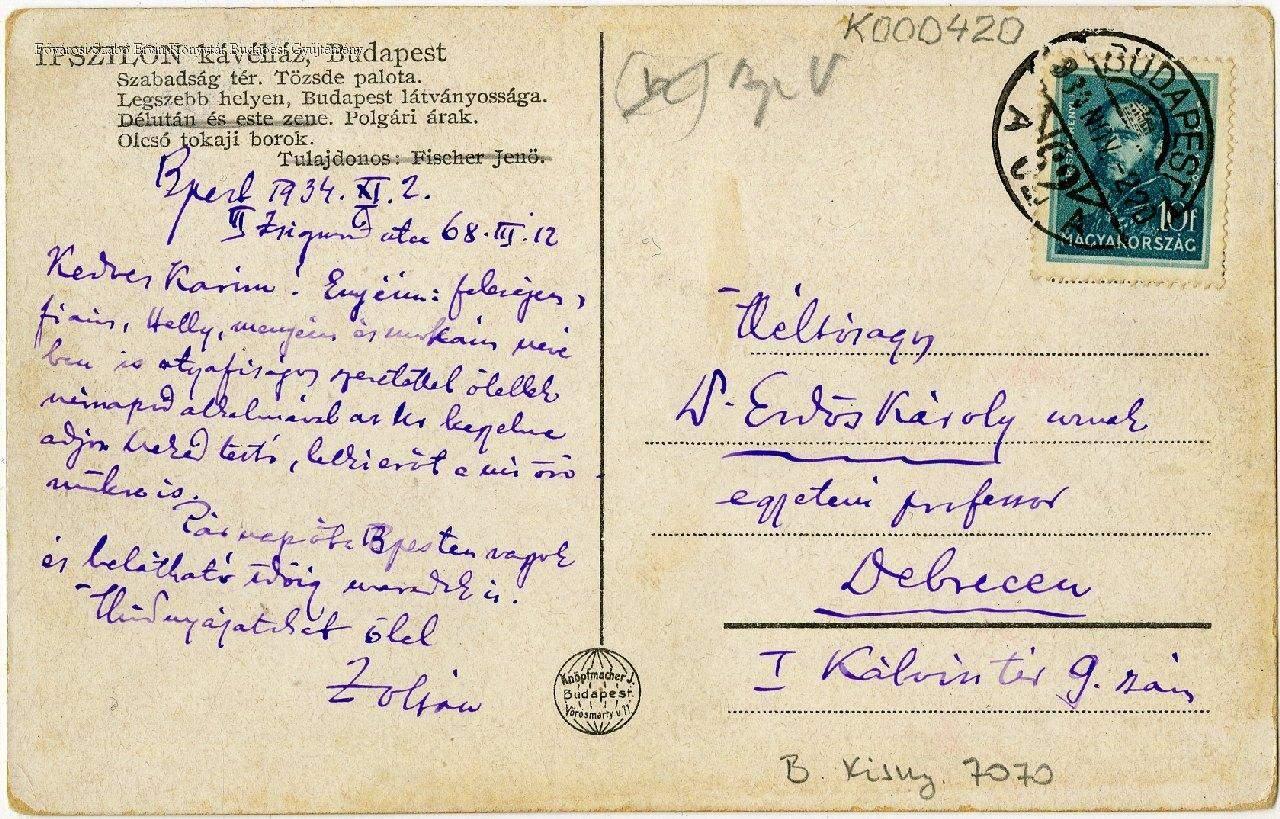 Fővárosi Szabó Ervin Könyvtár, Budapest Gyűjtemény
IPSZILON kávéház, Budapest
Szabadság tér. Tőzsde palota.
Legszebb helyen, Budapest látványossága.
Délután és este zene. Polgári árak.
Olcsó tokaji borok.
Tulajdonos: Fischer Jenő.
Bpest 1934. XI. 2.
III Zsigmond utca 68. III. 12
Kedves Karim! Enyéim: feleségem,
fiaim, Helly, menyém és unokáim nevé
ben is atyafiságos szeretettel ölellek
névnapod alkalmával az Úr kegyelme
adjon neked testi, lelki erőt a mi örö
münkre is.
Pár nap óta Bpesten vagyok
és belátható időig maradok is.
Mindnyájatokat ölel
Zoltán
K000420
Bp V
BUDAPEST
934 NOV
10f
MAGYARORSZÁG
Méltóságos
Dr. Erdős Károly urnak
egyetemi professor
Debrecen
I Kálvin tér 9. szám
Knöpfmacher J.
Budapest.
Vörösmarty u.
B. Kisny. 7070